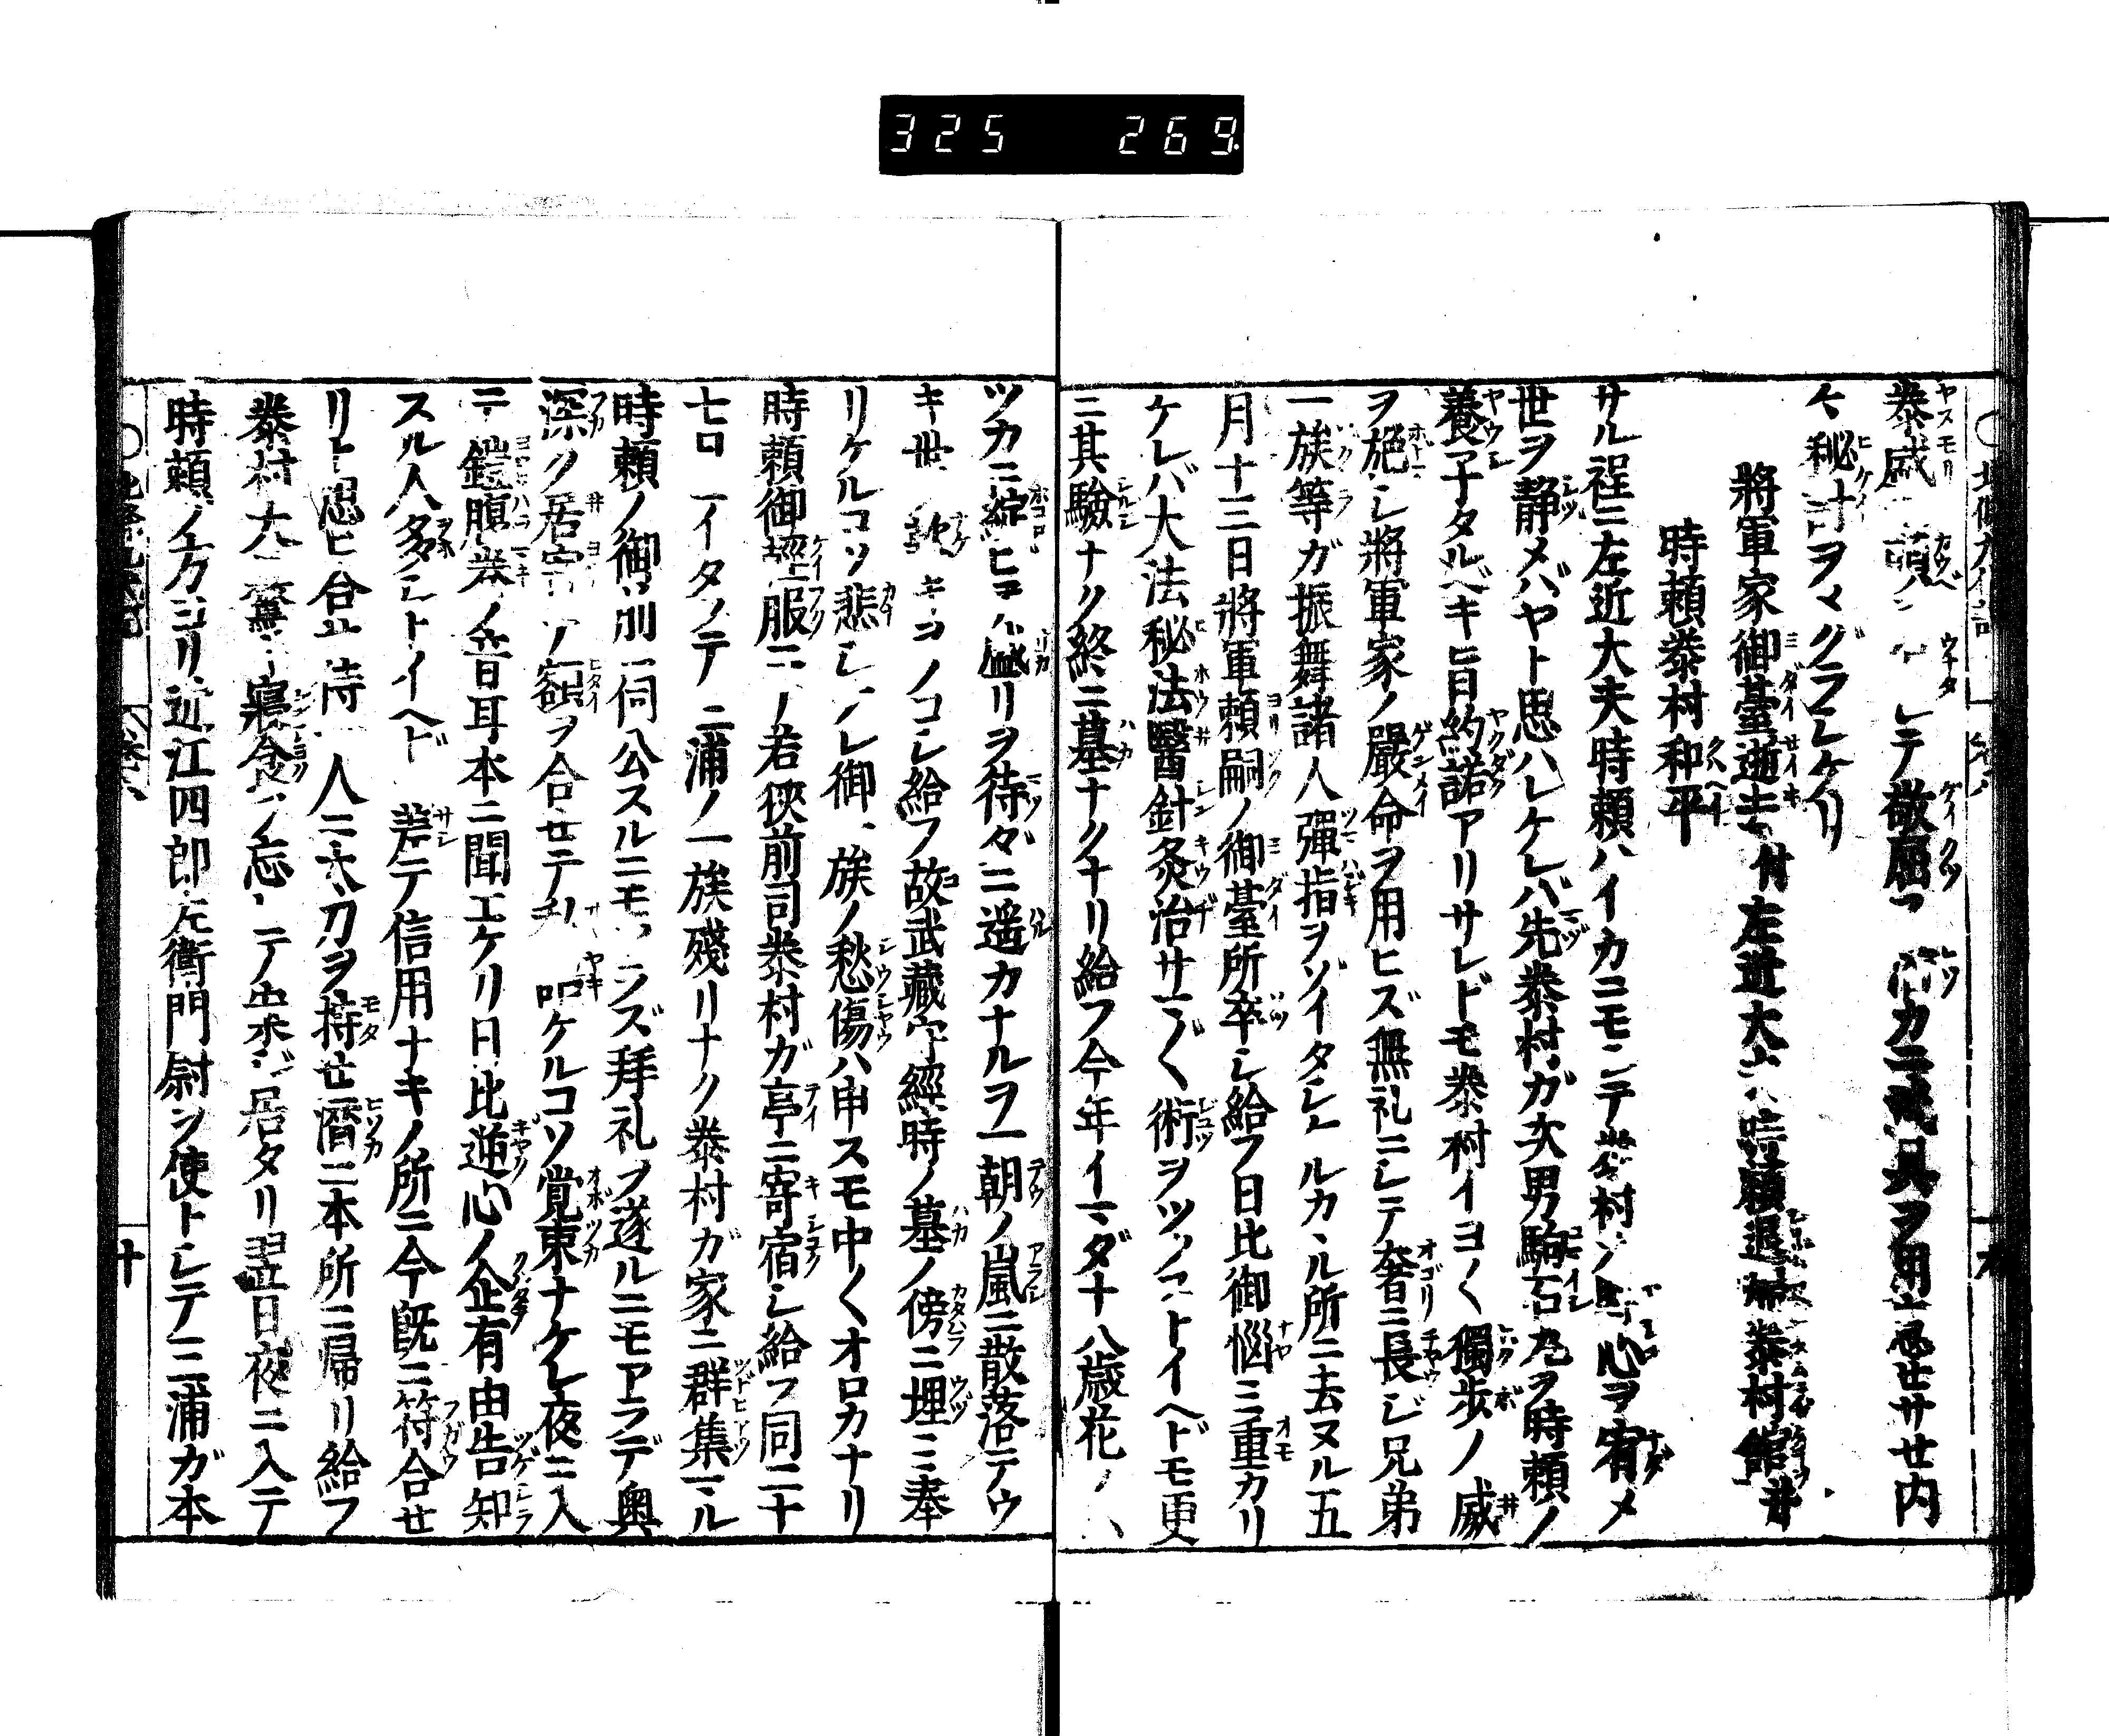 325 269
泰盛頭シテ敬屈シカニ武具ヲ用意セサセ内
々秘計ヲマグラレケリ
將軍家御臺逝去付左近大夫時頼退泰村館并
時頼泰村和平
サル程ニ左近大夫時頼ハイカニモシテ泰村ノ心ヲ宥メ
世ヲ静メバヤト思ハレケレバ先泰村ガ次男駒石丸ヲ時頼ノ
養子タルベキ旨約諾アリサレドモ泰村イヨ〱獨歩ノ威
ヲ施シ將軍家ノ嚴命ヲ用ヒズ無礼ニシテ奢ニ長ジ兄弟
一族等ガ振舞諸人彈指ヲゾイタシケルカヽル所ニ去ヌル五
月十三日將軍頼嗣ノ御臺所卒シ給フ日比御惱ミ重カリ
ケレバ大法秘法醫針灸治サマ〲術ヲツクストイヘドモ更
ニ其驗ナク終ニ墓ナクナリ給フ今年イマダ十八歳花ノ
ツカニ綻ビヨハ盛リヲ待々ニ遥カナルヲ一朝ノ嵐ニ散落テウ
キ世ノコシ給フ故武藏守經時ノ墓ノ傍ニ埋ミ奉
リケルコソ悲シケレ御一族ノ愁傷ハ申スモ中〱オロカナリ
時頼御軽服ニテ若狹前司泰村ガ亭ニ寄宿シ給フ同二十
七日ニイタツテ三浦ノ一族殘リナク泰村ガ家ニ群集マル
時頼ノ御前ニ伺公スルニモアラズ拜礼ヲ遂ルニモアラデ奥
深ク居寄リ額ヲ合セテ私語ケルコソ覚束ナケレ夜ニ入
テ鎧腹巻ノ音耳本ニ聞エケリ日比逆心ノ企有由告知
スル人多シトイヘドモ差テ信用ナキノ所ニ今既ニ符合セ
リト思ヒ合セ侍一人ニ太刀ヲ持セ潛ニ本所ニ帰リ給フ
泰村大ニ驚キ寢食ヲ忘レテ案ジ居タリ翌日夜ニ入テ
時頼ノ方ヨリ近江四郎左衛門尉ヲ使トシテ三浦ガ本
十